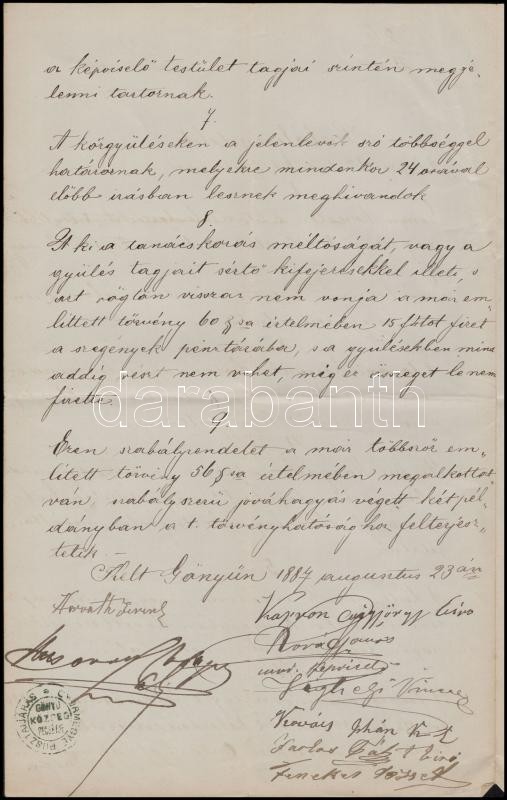 a képviselő testület tagjai szintén megje„
lenni tartoznak.
7.
A közgyüléseken a jelenlevők szó többséggel
határoznak, melyekre mindenkor 24 orával
előbb irásban lesznek meghivandok
8.
A ki a tanácskozás méltóságát, vagy a
gyülés tagjait sértő kifejezésekkel illeti, s
azt rögtön vissza nem vonja a már em„
littett törvény 60 §sa értelmében 15 ftot fizet
a szegények pénztárába, s a gyülésekben mind
addig részt nem vehet, míg ez összeget le nem
fizette.
darabanth
9.
Ezen szabályrendelet a már többször em„
lített törvény 56 §sa értelmében megalkottat
ván, szabályszerü jóváhagyás végett két pél„
dányban a t. törvényhatósághoz felterjesz„
tetik. —
Kelt Gönyün 1887 augusztus 23án
Horváth Ferencz
György biró
Kovács János
Vincze
Kovács Ihán
Farkas biró
Fenekes József
GÖNYŰ
KÖZSÉG